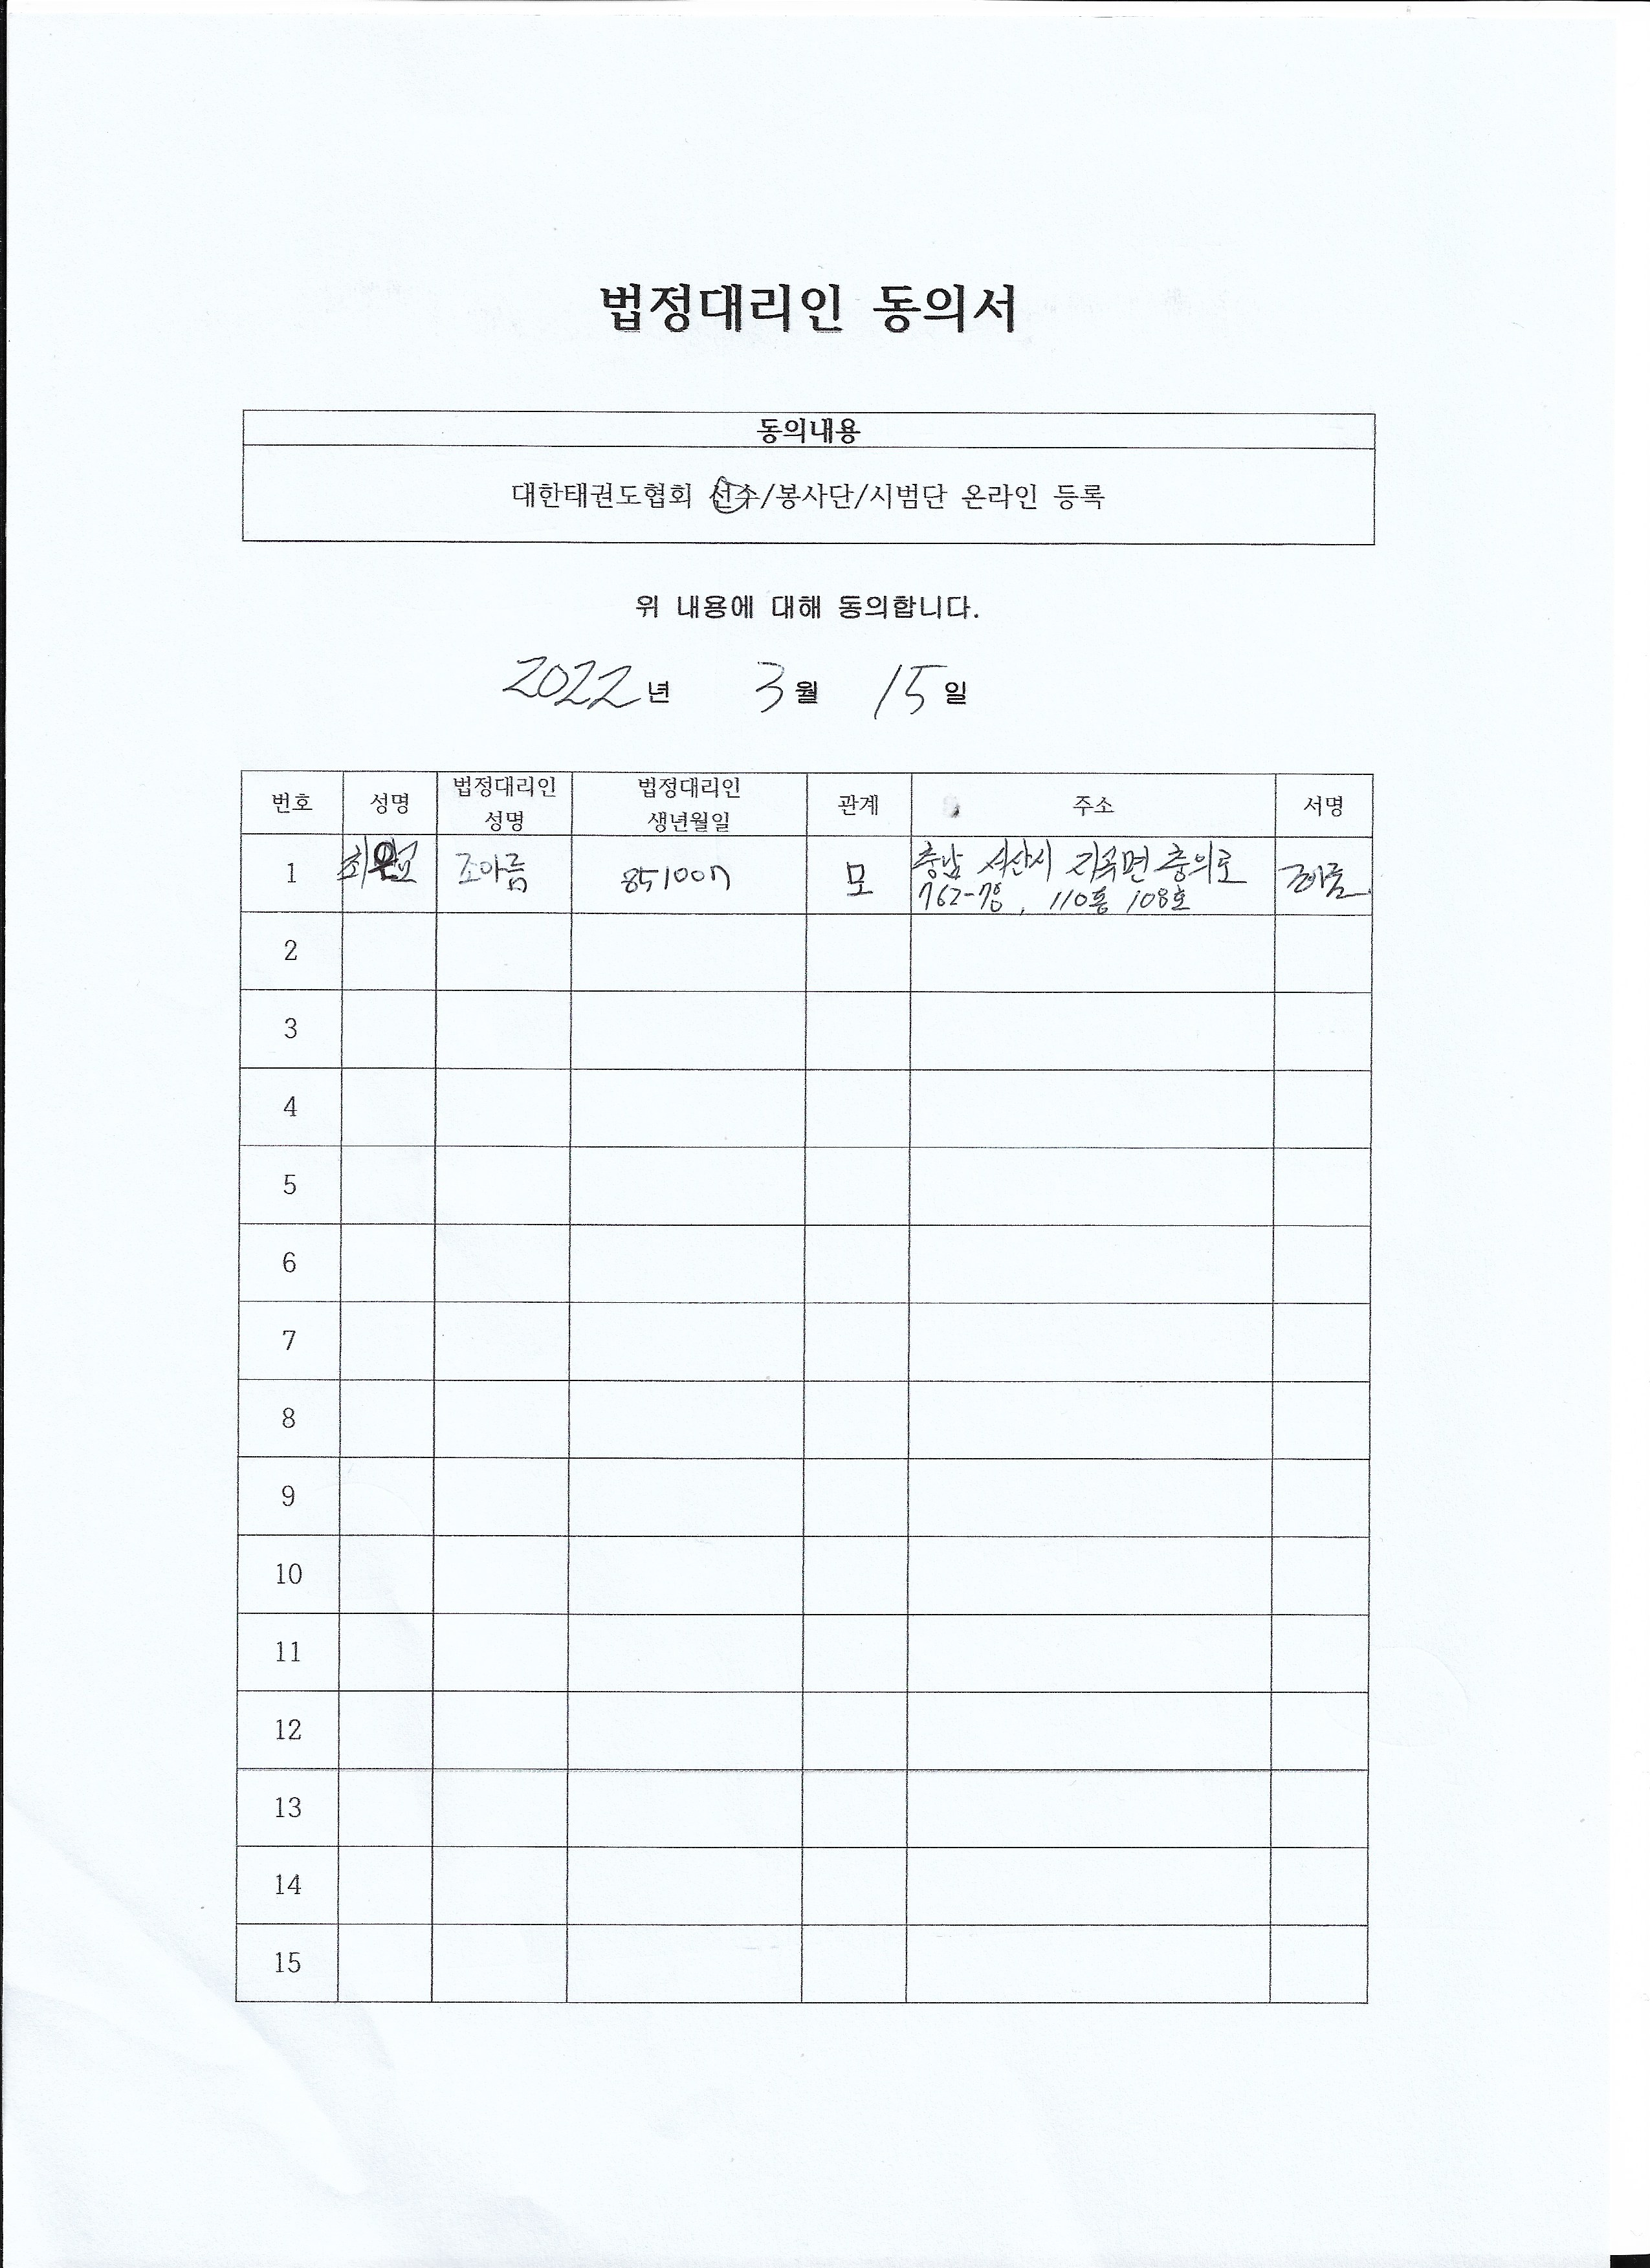 법정대리인 동의서
동의내용
대한태권도협회 선수/봉사단/시범단 온라인 등록
위 내용에 대해 동의합니다.
2022년 3월 15일
번호 성명 법정대리인 성명 법정대리인 생년월일 관계 주소 서명
1 조아름 851007 모 충남 서산시 지곡면 충의로
110동 108호
2
3
4
5
6
7
8
9
10
11
12
13
14
15